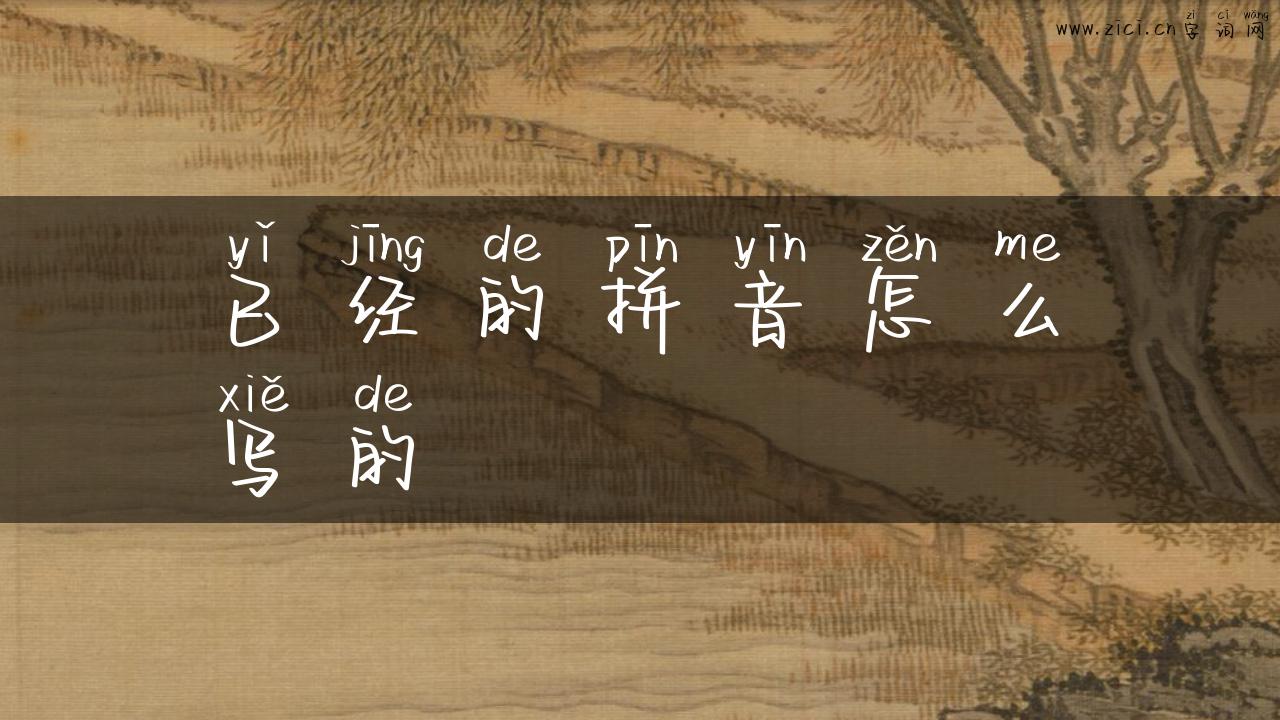 zì cí wǎng
www.zici.cn字词网
yǐ jīng de pīn yīn zěn me
已经的拼音怎么
xiě de
写的